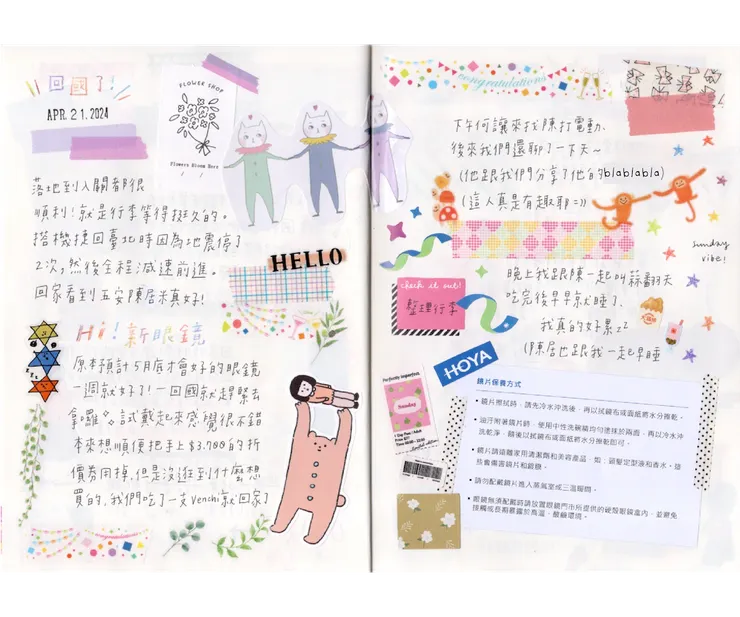 回國了!
APR. 21. 2024
FLOWER SHOP
Flowers Bloom Here
落地到入關都很
順利!就是行李等得挺久的。
搭機捷回臺北時因為地震停了
2次,然後全程減速前進。
回家看到五安陳居米真好!
HELLO
Hi! 新眼鏡
原本預計5月底才會好的眼鏡
一週就好了!一回國就趕緊去
拿囉 試戴起來感覺很不錯
本來想順便把手上$3,700的折
價券用掉,但是沒逛到什麼想
買的,我們吃了一支Venchi就回家了
congratulations
下午何讓來找陳打電動,
後來我們還聊了一下天~
(他跟我們分享了他的blablabla)
(這人真是有趣耶=))
sunday
vibe!
check it out!
整理行李
晚上我跟陳一起叫蒜翻天
吃完後早早就睡了,
我真的好累zz
(陳居也跟我一起早睡
HOYA
Perfectly Imperfect.
Sunday
鏡片保養方式
• 鏡片擦拭時,請先冷水沖洗後,再以拭鏡布或面紙將水分擦乾。
• 油汙附著鏡片時,使用中性洗碗精均勻塗抹於兩面,再以冷水沖
洗乾淨,隨後以拭鏡布或面紙將水分擦乾即可。
• 鏡片請遠離家用清潔劑和美容產品,如:頭髮定型液和香水,這
些會傷害鏡片和鍍膜。
• 請勿配戴鏡片進入蒸氣室或三溫暖間。
• 眼鏡無須配戴時請放置眼鏡門市所提供的硬殼眼鏡盒內,並避免
接觸或長期暴露於高溫、酸鹼環境。